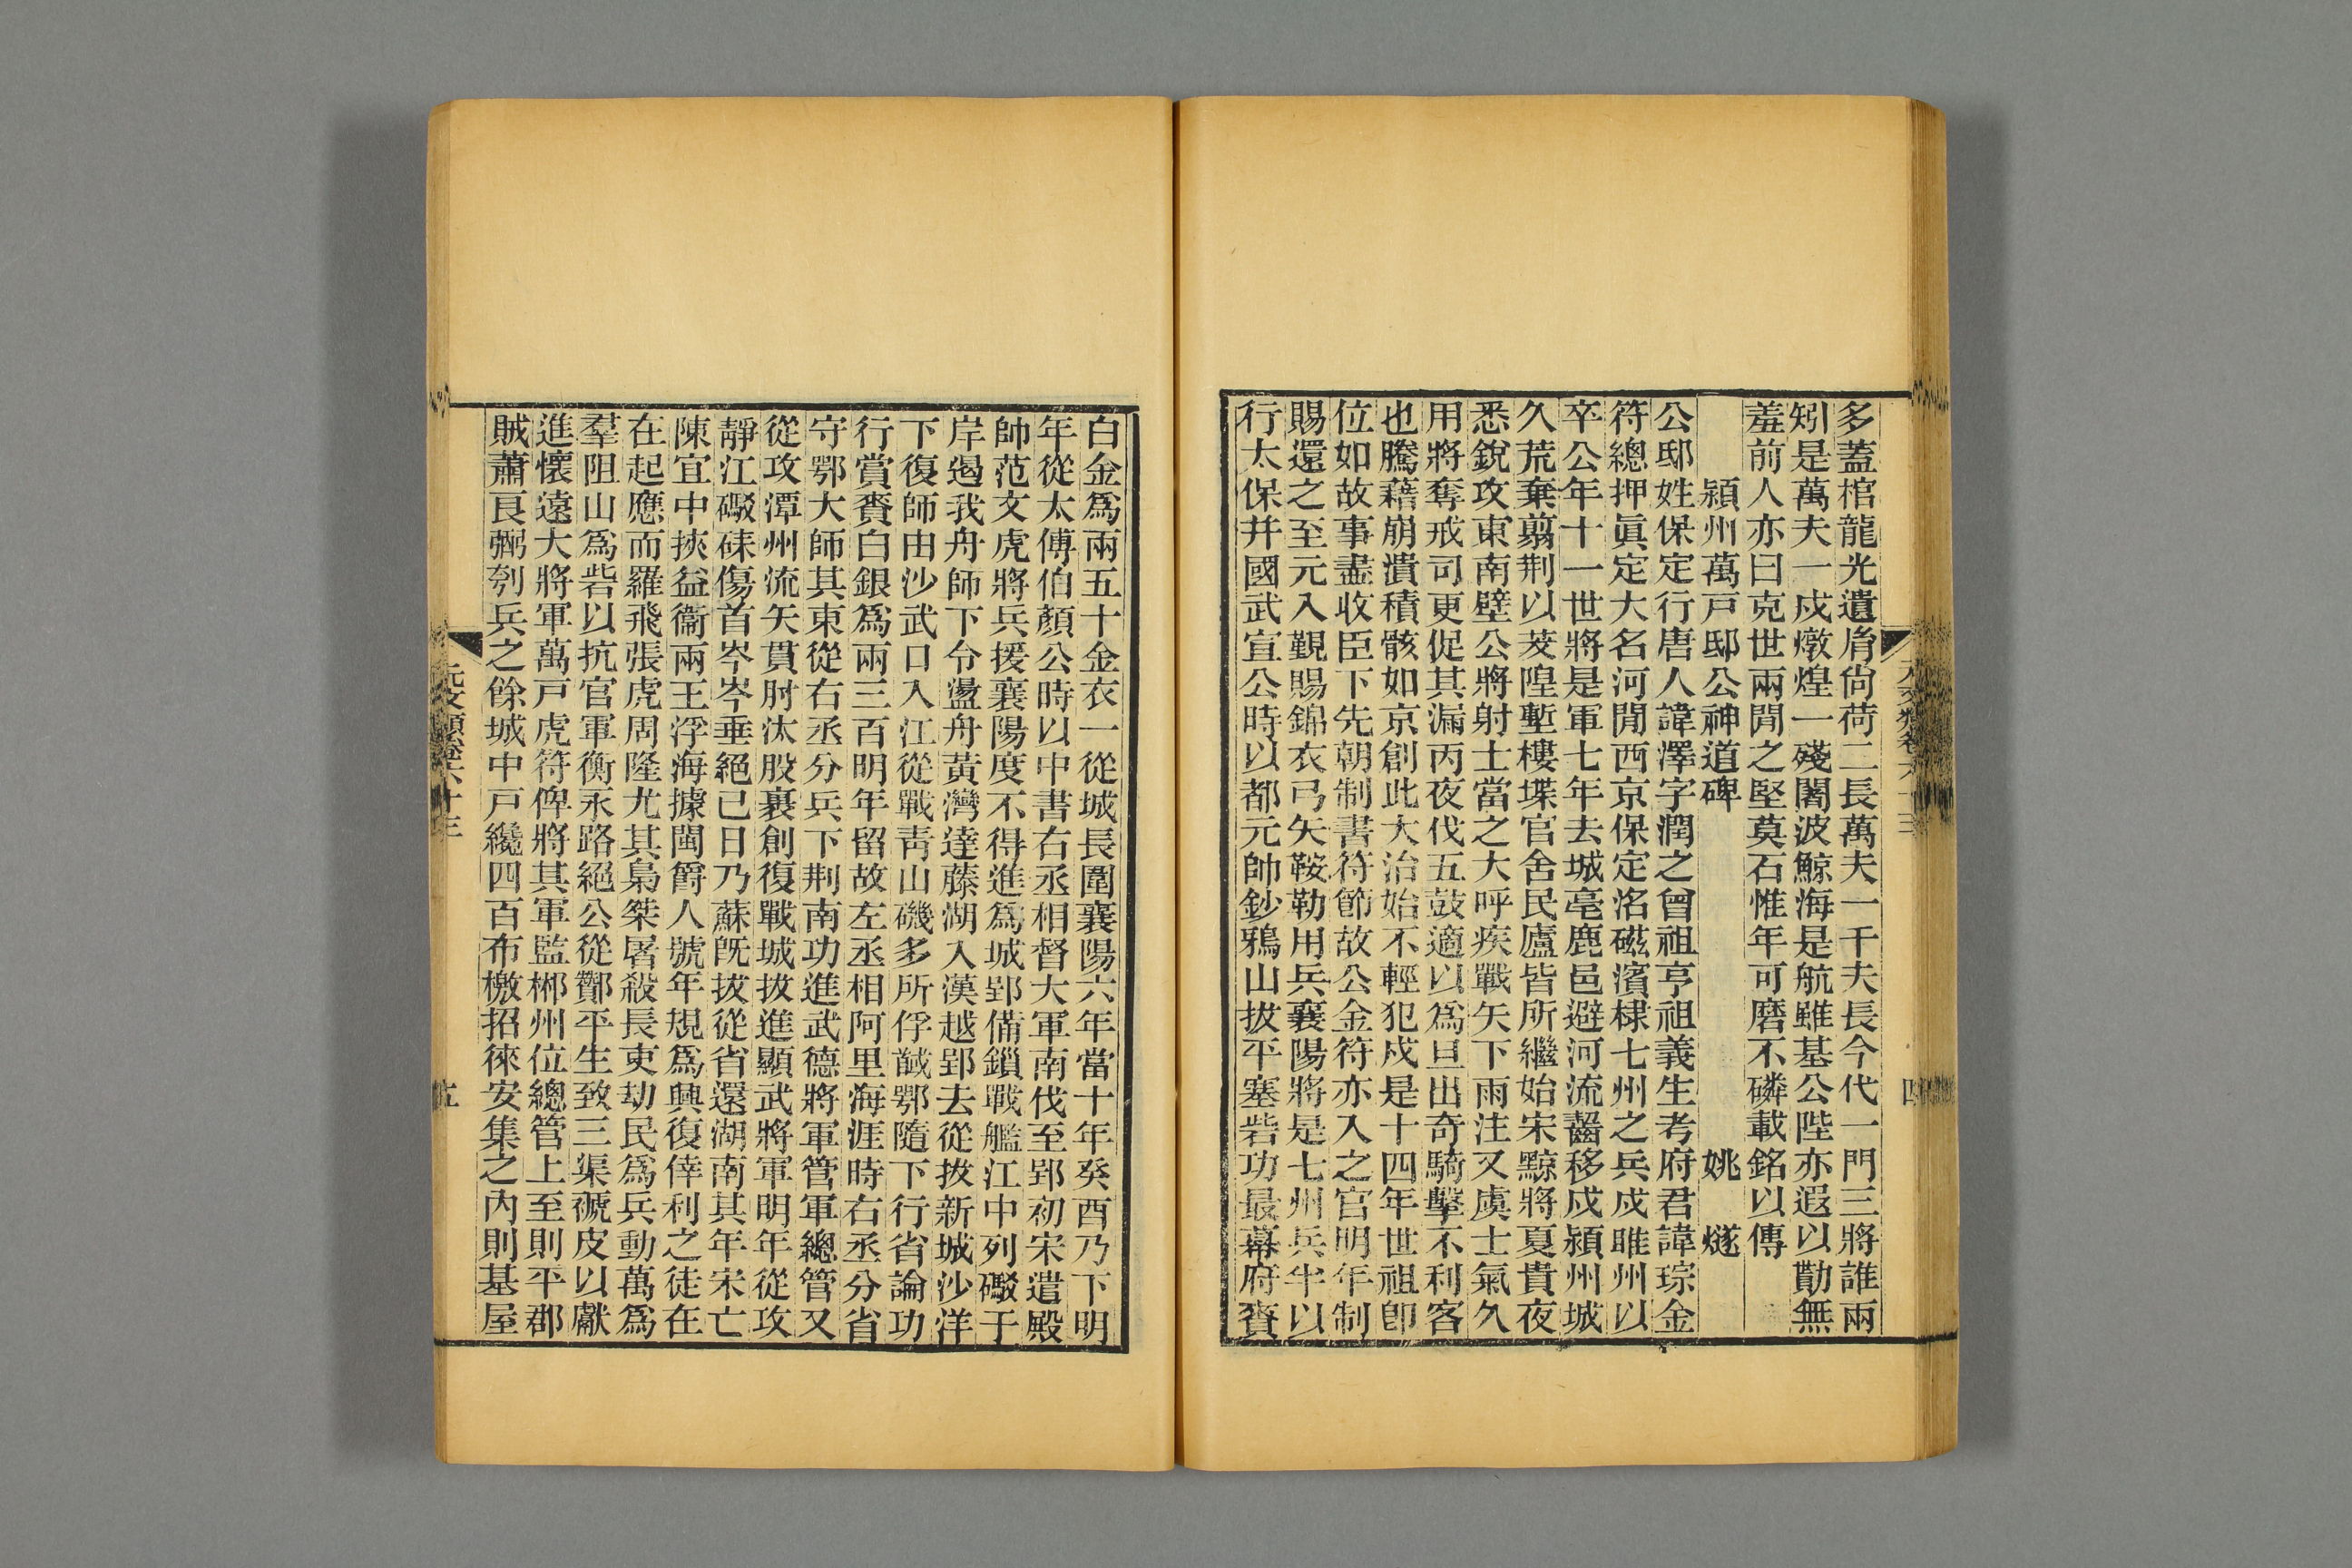 多蓋棺龍光遺胄尙荷二長萬夫一千夫長今代一門三將誰兩
矧是萬夫一戍燉煌一殘闍波鯨海是航雖基公陛亦遐以勩無
羞前人亦曰克世兩閒之堅莫石惟年可磨不磷載銘以傳
潁州萬戸邸公神道碑　姚　燧
公邸姓保定行唐人諱澤字潤之曾祖亨祖義生考府君諱琮金
符總押眞定大名河閒西京保定洺磁濱棣七州之兵戍睢州以
卒公年十一世將是軍七年去城亳鹿邑避河流齧移戍潁州城
久荒棄翦荆以茇隍塹樓堞官舍民廬皆所繼始宋黥將夏貴夜
悉銳攻東南壁公將射士當之大呼疾戰矢下雨注又虞士氣久
用將奪戒司更促其漏丙夜伐五鼓適以爲旦出奇騎擊不利客
也騰藉崩潰積骸如京創此大治始不輕犯戍是十四年世祖卽
位如故事盡收臣下先朝制書符節故公金符亦入之官明年制
賜還之至元入覲賜錦衣弓矢鞍勒用兵襄陽將是七州兵半以
行太保幷國武宣公時以都元帥鈔鴉山拔平塞砦功最幕府賚
白金爲兩五十金衣一從城長圍襄陽六年當十年癸酉乃下明
年從太傅伯顏公時以中書右丞相督大軍南伐至郢初宋遣殿
帥范文虎將兵援襄陽度不得進爲城郢備鎖戰艦江中列礮于
岸遏我舟師下令盪舟黃灣達藤湖入漢越郢去從拔新城沙洋
下復師由沙武口入江從戰靑山磯多所俘馘鄂隨下行省論功
行賞賚白銀爲兩三百明年留故左丞相阿里海涯時右丞分省
守鄂大師其東從右丞分兵下荆南功進武德將軍管軍總管又
從攻潭州流矢貫肘汰股裹創復戰城拔進顯武將軍明年從攻
靜江礮硃傷首岑岑垂絕已日乃蘇旣拔從省還湖南其年宋亡
陳宜中挾益衞兩王浮海據閩爵人號年規爲興復倖利之徒在
在起應而羅飛張虎周隆尤其梟桀屠殺長吏劫民爲兵動萬爲
羣阻山爲砦以抗官軍衡永路絕公從酇平生致三渠禠皮以獻
進懷遠大將軍萬戸虎符俾將其軍監郴州位總管上至則平郡
賊蕭良弼刳兵之餘城中戸纔四百布檄招徠安集之內則基屋
元文類卷六十三
五
四